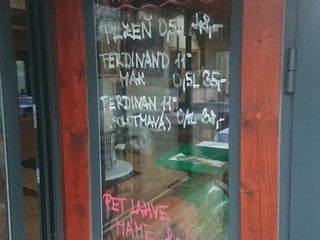 PLZEŇ 0,5L
FERDINAND 11°
MAX 0,5L 35,-
FERDINAN 11°
(POLOTMAVÁ) 0,4L
PET LAHVE
MÁME